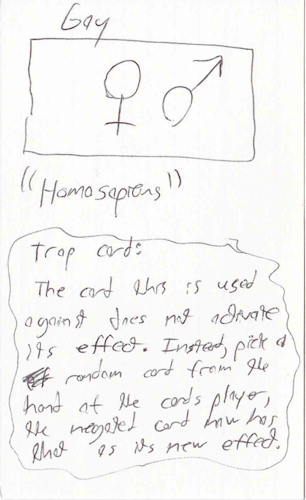 Gay
"Homosapiens"
Trap card:
The card this is used
against does not activate
its effect. Instead, pick a
random card from the
hand of the cards player,
the negated card now has
that as its new effect.